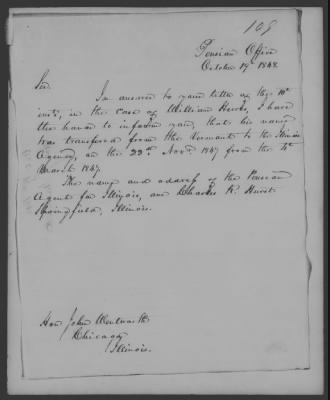 109
Pension Office
October 19th 1848.
Sir.
In answer to your letter of the 10th
inst, in the case of William Hurks, I have
the honor to inform you, that his name
was transfered from the Vermont to the Illinois
Agency, on the 22nd Novr. 1847 from the 4th
March 1847.
The name and address of the Pension
Agent for Illinois, are Charles R. Hurst
Springfield, Illinois.
Hon John Wentworth
Chicago
Illinois.